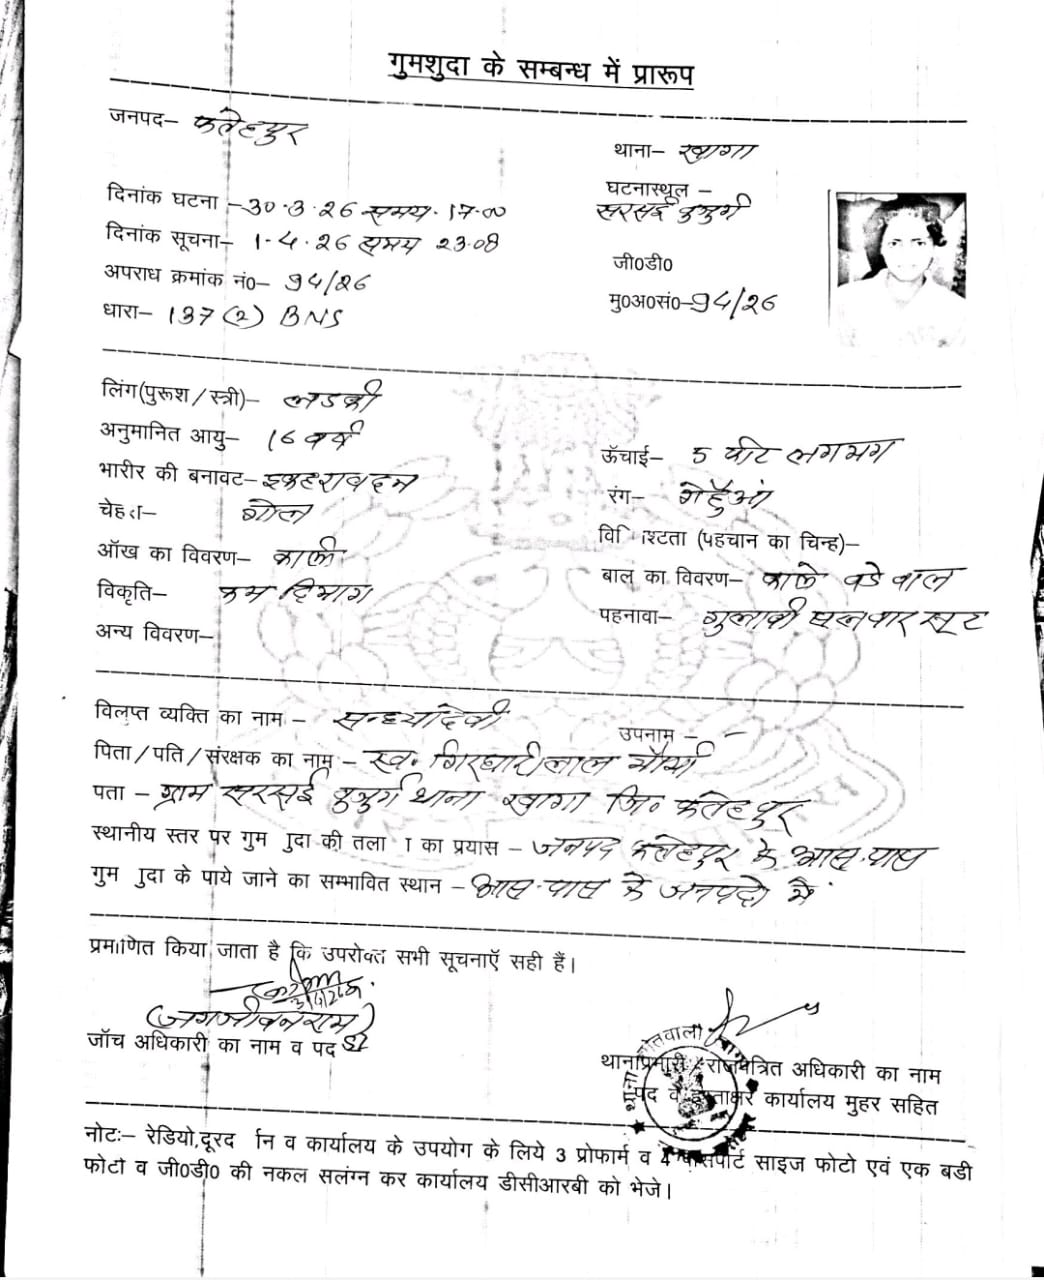 गुमशुदा के सम्बन्ध में प्रारूप
जनपद– फतेहपुर
थाना– खागा
दिनांक घटना –30·3·26 समय·17·00
घटनास्थल –
सरसई बुजुर्ग
दिनांक सूचना– 1·4·26 समय 23·08
जी0डी0
अपराध क्रमांक नं0– 94/26
मु0अ0सं0–94/26
धारा– 137(2) BNS
लिंग(पुरूश/स्त्री)– लडकी
अनुमानित आयु– 16 वर्ष
ऊँचाई– 5 फीट लगभग
भारीर की बनावट– इकहरा बदन
रंग– गेहुँआ
चेहरा– गोल
विशिश्टता (पहचान का चिन्ह)–
ऑख का विवरण– काली
बाल का विवरण– काले बडे बाल
विकृति– कम दिमाग
पहनावा– गुलाबी सलवार सूट
अन्य विवरण–
विलुप्त व्यक्ति का नाम – सन्ध्यादेवी
उपनाम – –
पिता/पति/संरक्षक का नाम – स्व॰ गिरधारीलाल मौर्या
पता – ग्राम सरसई बुजुर्ग थाना खागा जि॰ फतेहपुर
स्थानीय स्तर पर गुम ुदा की तला ा का प्रयास – जनपद फतेहपुर के आस-पास
गुम ुदा के पाये जाने का सम्भावित स्थान – आस-पास के जनपदो में
प्रमाणित किया जाता है कि उपरोक्त सभी सूचनाऐं सही हैं।
(जगजीवनराम)
जॉच अधिकारी का नाम व पद SI
थाना कोतवाली खागा
थानाप्रभारी/राजपत्रित अधिकारी का नाम
पद व हस्ताक्षर कार्यालय मुहर सहित
नोटः– रेडियो,दूरद र्न व कार्यालय के उपयोग के लिये 3 प्रोफार्म व 4 पासपोर्ट साइज फोटो एवं एक बडी
फोटो व जी0डी0 की नकल सलंग्न कर कार्यालय डीसीआरबी को भेजे।